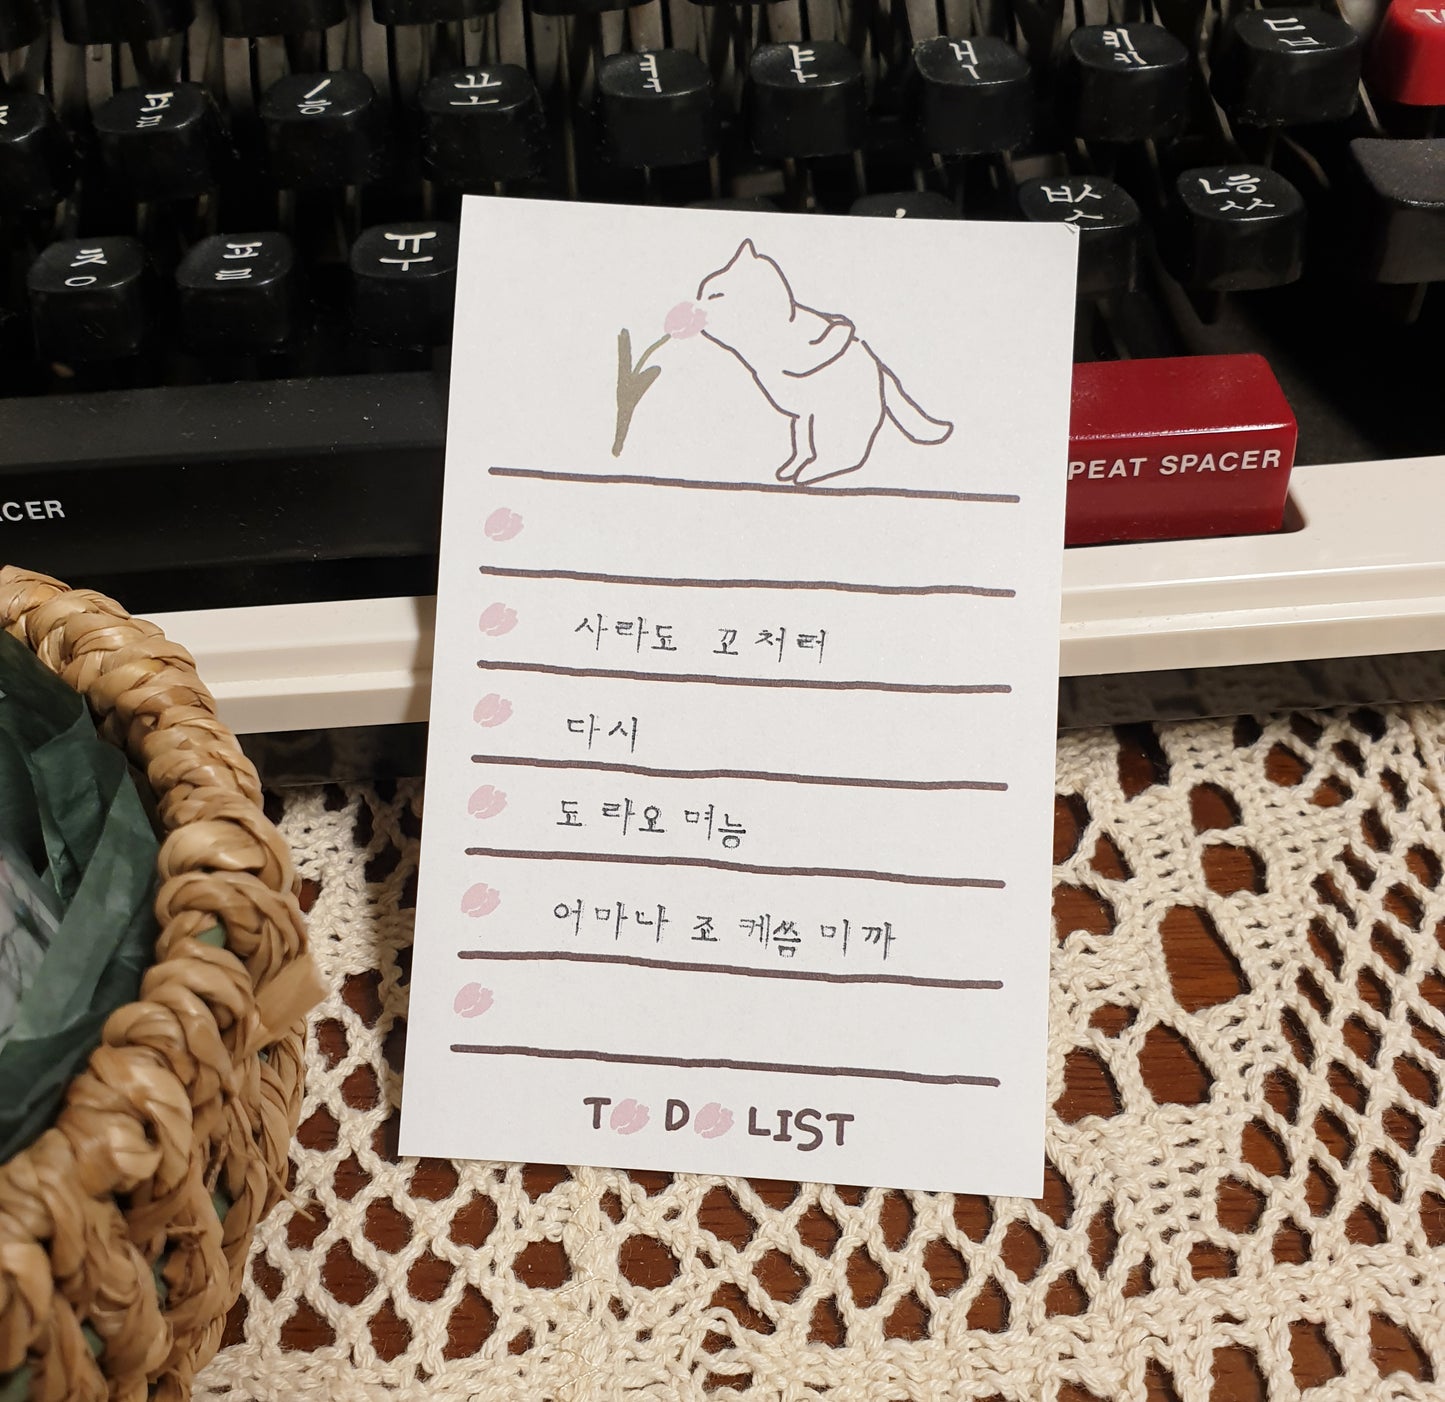 ACER
PEAT SPACER
사라됴 꼬처러
다시
됴 라오 며능
어마나 죠 케씀 미까
TO DO LIST